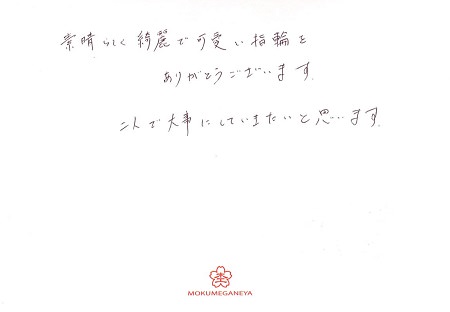 素晴らしく綺麗で可愛い指輪を
ありがとうございます。
二人で大事にしていきたいと思います。
MOKUMEGANEYA